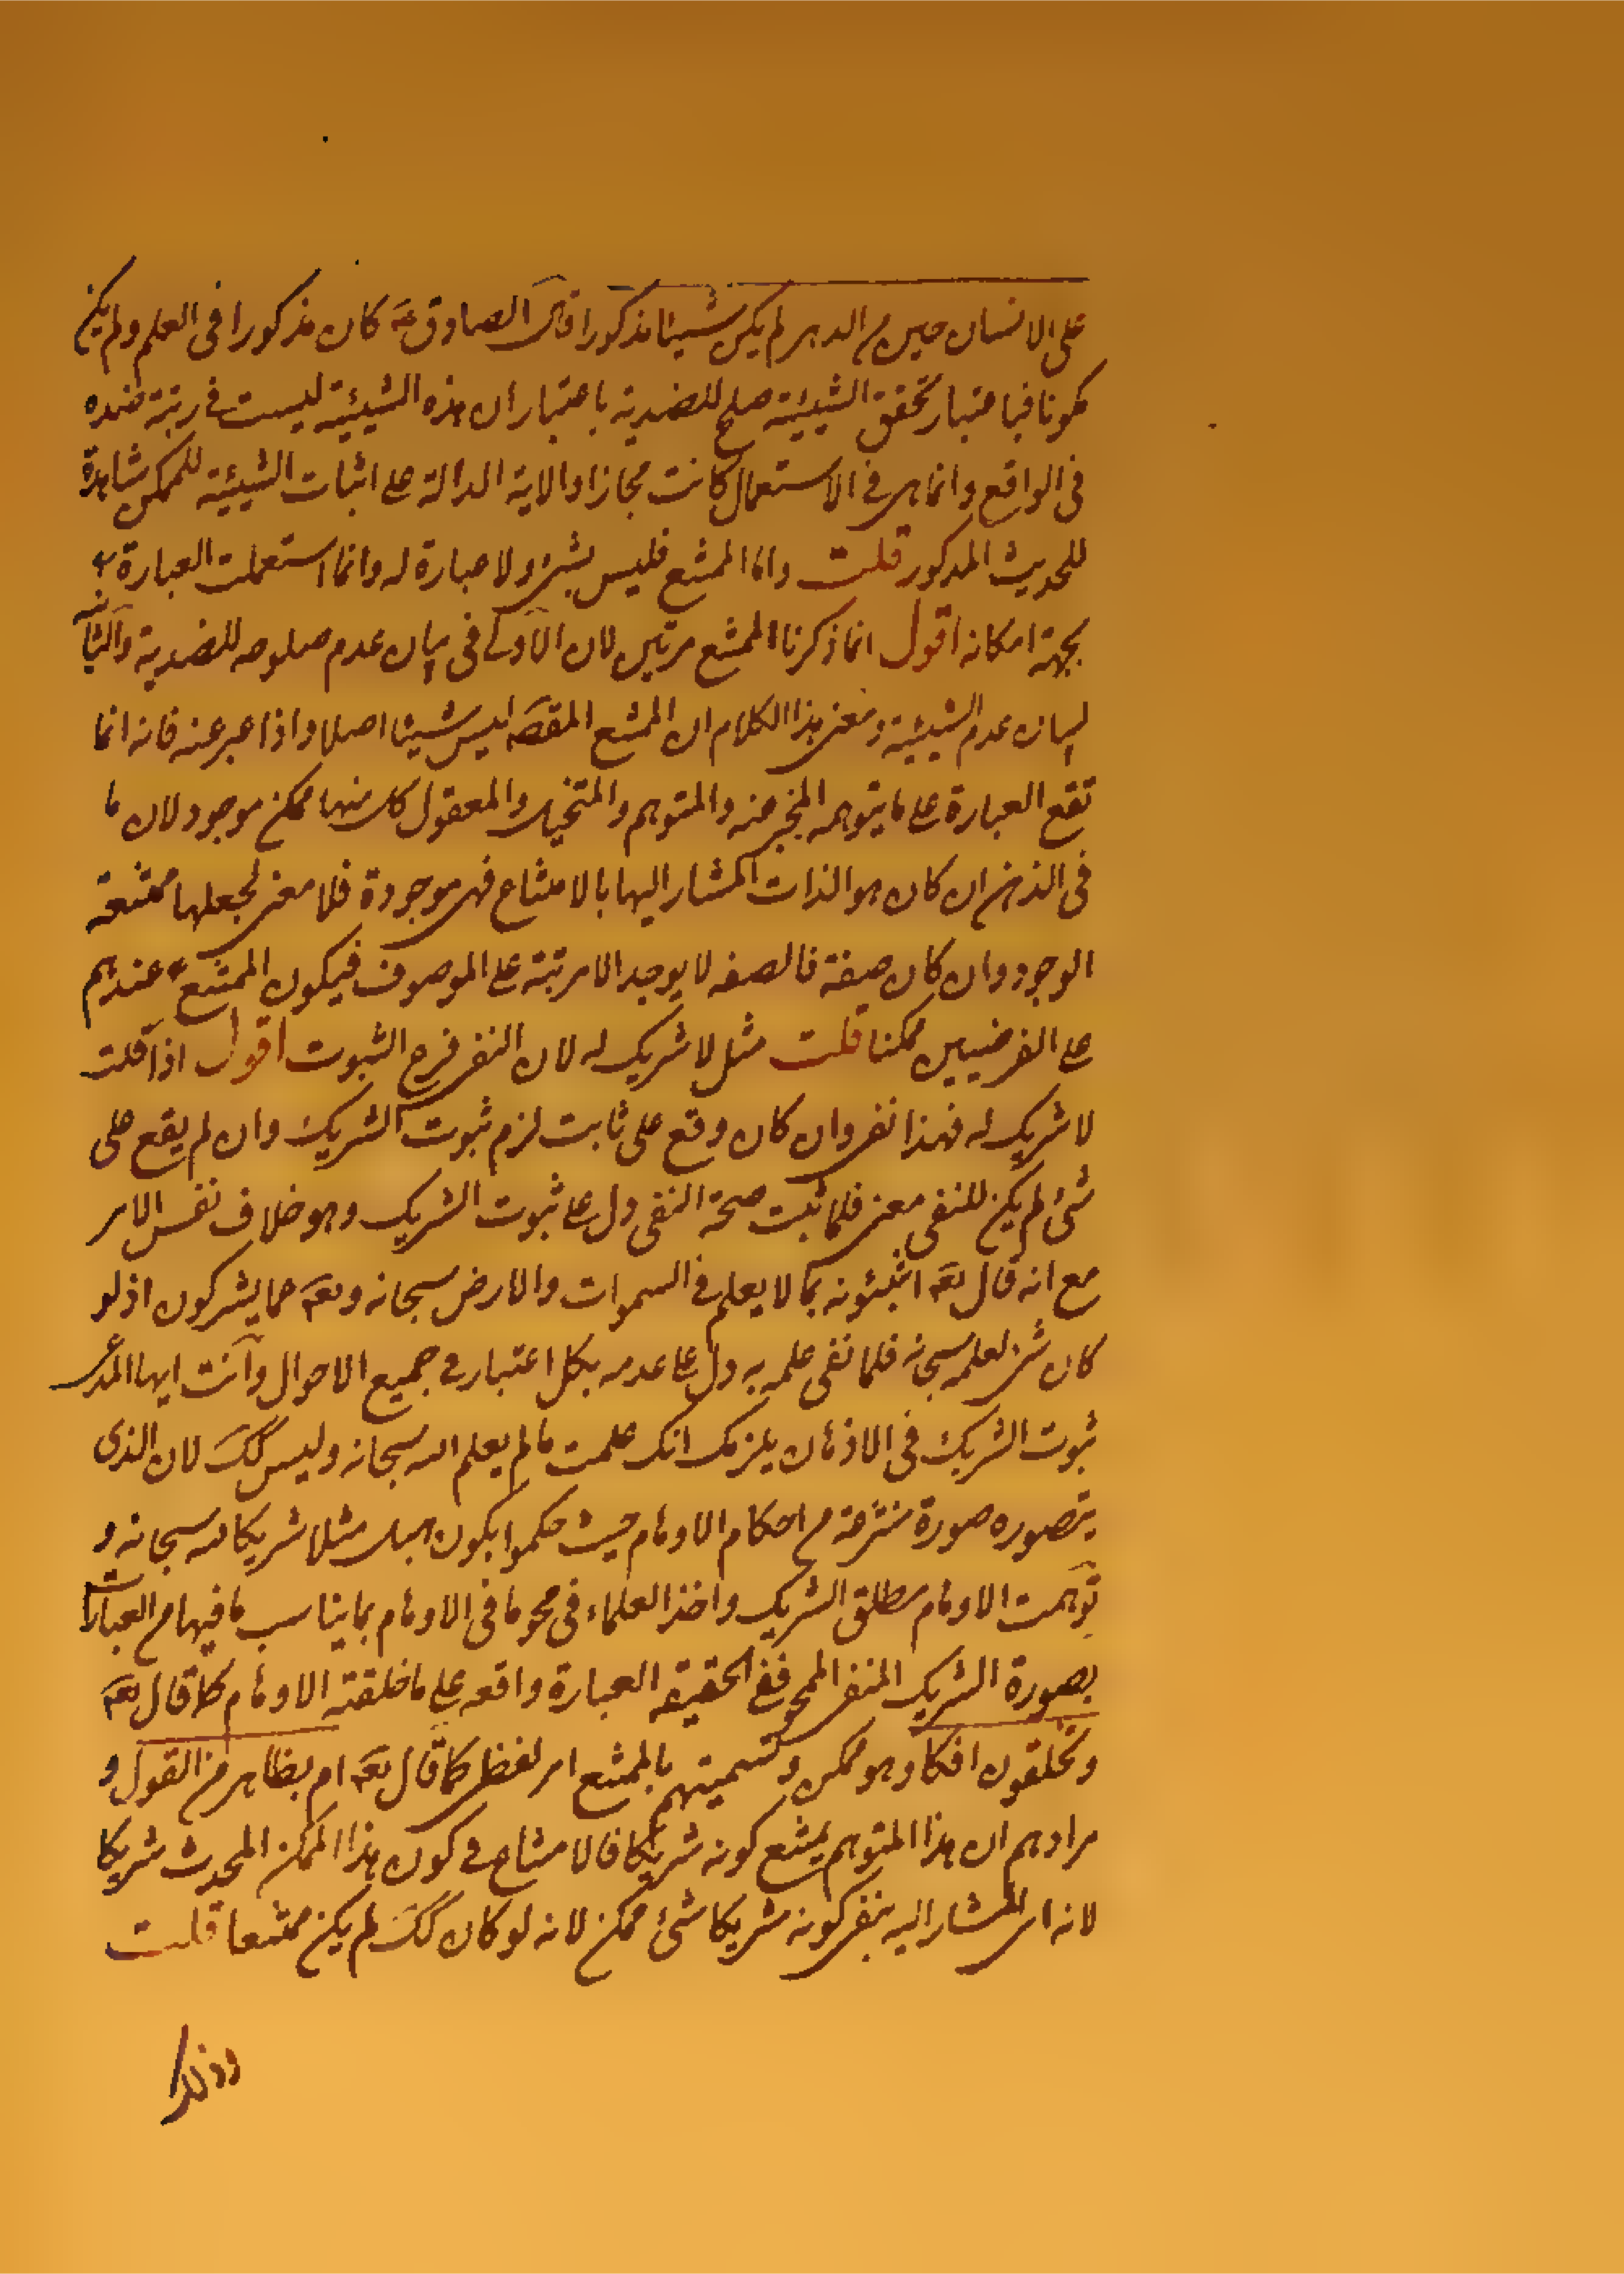 على الانسان حين من الدهر لم يكن شيئا مذكورا قال الصادق ع كان مذكورا فى العلم ولم يكن
مكونا فباعتبار تحقق الشيئية صلح للضدية باعتبار ان هذه الشيئية ليست فى رتبة ضده
فى الواقع وانما هى فى الاستعمال كانت مجازا والاية الدالة على اثبات الشيئية للممكن شاهدة
للحديث المذكور قلت واما الممتنع فليس بشئ ولا عبارة له وانما استعملت العبارة
بجهة امكانه اقول انما ذكرنا الممتنع مرتين لان الاولى فى بيان عدم صلوحه للضدية والثانية
لبيان عدم الشيئية ومعنى هذا الكلام ان الممتنع ليس شيئا اصلا واذا عبر عنه فانه انما
تقع العبارة على ما يتوهمه المخبر عنه والمتوهم والمتخيل والمعقول كل منها ممكن موجود لان ما
فى الذهن ان كان هو الذات المشار اليها بالامتناع فهى موجودة فلا معنى لجعلها ممتنعة
الوجود وان كان صفة فالصفه لا يوجد الا مرتبة على الموصوف فيكون الممتنع عندهم
على الفرضيين ممكنا قلت مثل لا شريك له لان النفى فرع الثبوت اقول اذا قلت
لا شريك له فهذا نفى وان كان وقع على ثابت لزم ثبوت الشريك وان لم يقع على
شئ لم يكن للنفى معنى فلما ثبت صحة النفى دل على ثبوت الشريك وهو خلاف نفس الامر
مع انه قال تعه اتنبئونه بما لا يعلم فى السموات والارض سبحانه وتعه عما يشركون اذ لو
كان شئ لعلمه سبحانه فلما نفى علمه به دل على عدمه بكل اعتبار فى جميع الاحوال وانت ايها المدعى
ثبوت الشريك فى الاذهان يلزمك انك علمت ما لم يعلم الله سبحانه وليس كك لان الذى
يتصوره صورة منتزعة من احكام الاوهام حيث حكموا بكون هبل مثلا شريكا لله سبحانه و
توهمت الاوهام مطلق الشريك واخذ العلماء فى محو ما فى الاوهام بما يناسب ما فيها من العبارات
بصورة الشريك المنفى الممحو ففى الحقيقه العبارة واقعه على ما خلقته الاوهام كما قال تعه
وتخلقون افكا وهو ممكن وتسميتهم بالممتنع امر لفظى كما قال تعه ام بظاهر من القول و
مرادهم ان هذا المتوهم يمتنع كونه شريكا فالامتناع فى كون هذا الممكن المحدث شريكا
لانه اى المشار اليه بنفى كونه شريكا شئ ممكن لانه لو كان كك لم يكن ممتنعا قلت